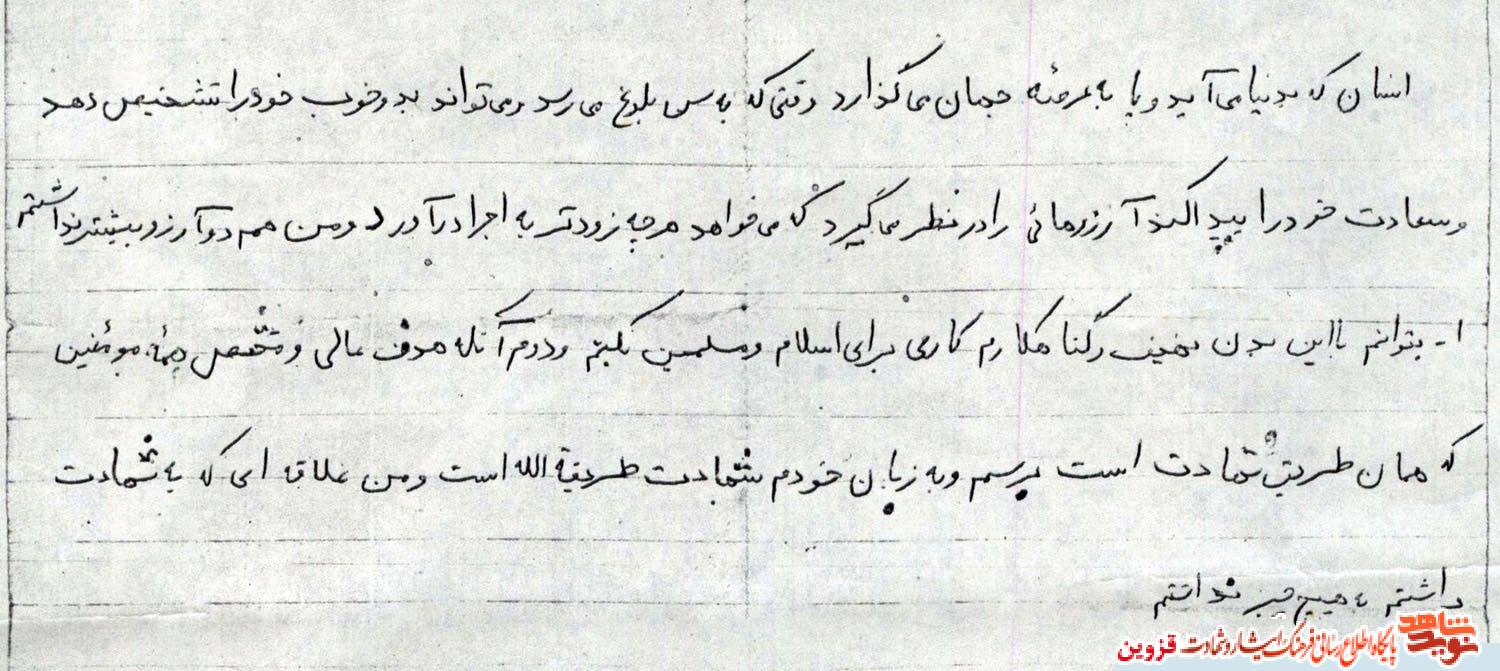 انسان که بدنیا می آید و پا به عرصه جهان می گذارد وقتی که به سن بلوغ می رسد و می تواند بد و خوب خود را تشخیص دهد
و سعادت خود را پیدا کند آرزوهائی را در نظر می گیرد که می خواهد هر چه زودتر به اجرا درآورد و من هم دو آرزو بیشتر نداشتم
۱- بتوانم با این بدن نحیف و گناهکارم کاری برای اسلام و مسلمین بکنم و دوم آنکه هدف عالی و مشخص همه مومنین
که همان طریق شهادت است برسم و به زبان خودم شهادت طریقة الله است و من علاقه ای که به شهادت
داشتم به هیچ چیز نداشتم
نوید شاهد پایگاه اطلاع رسانی فرهنگ ایثار و شهادت قزوین